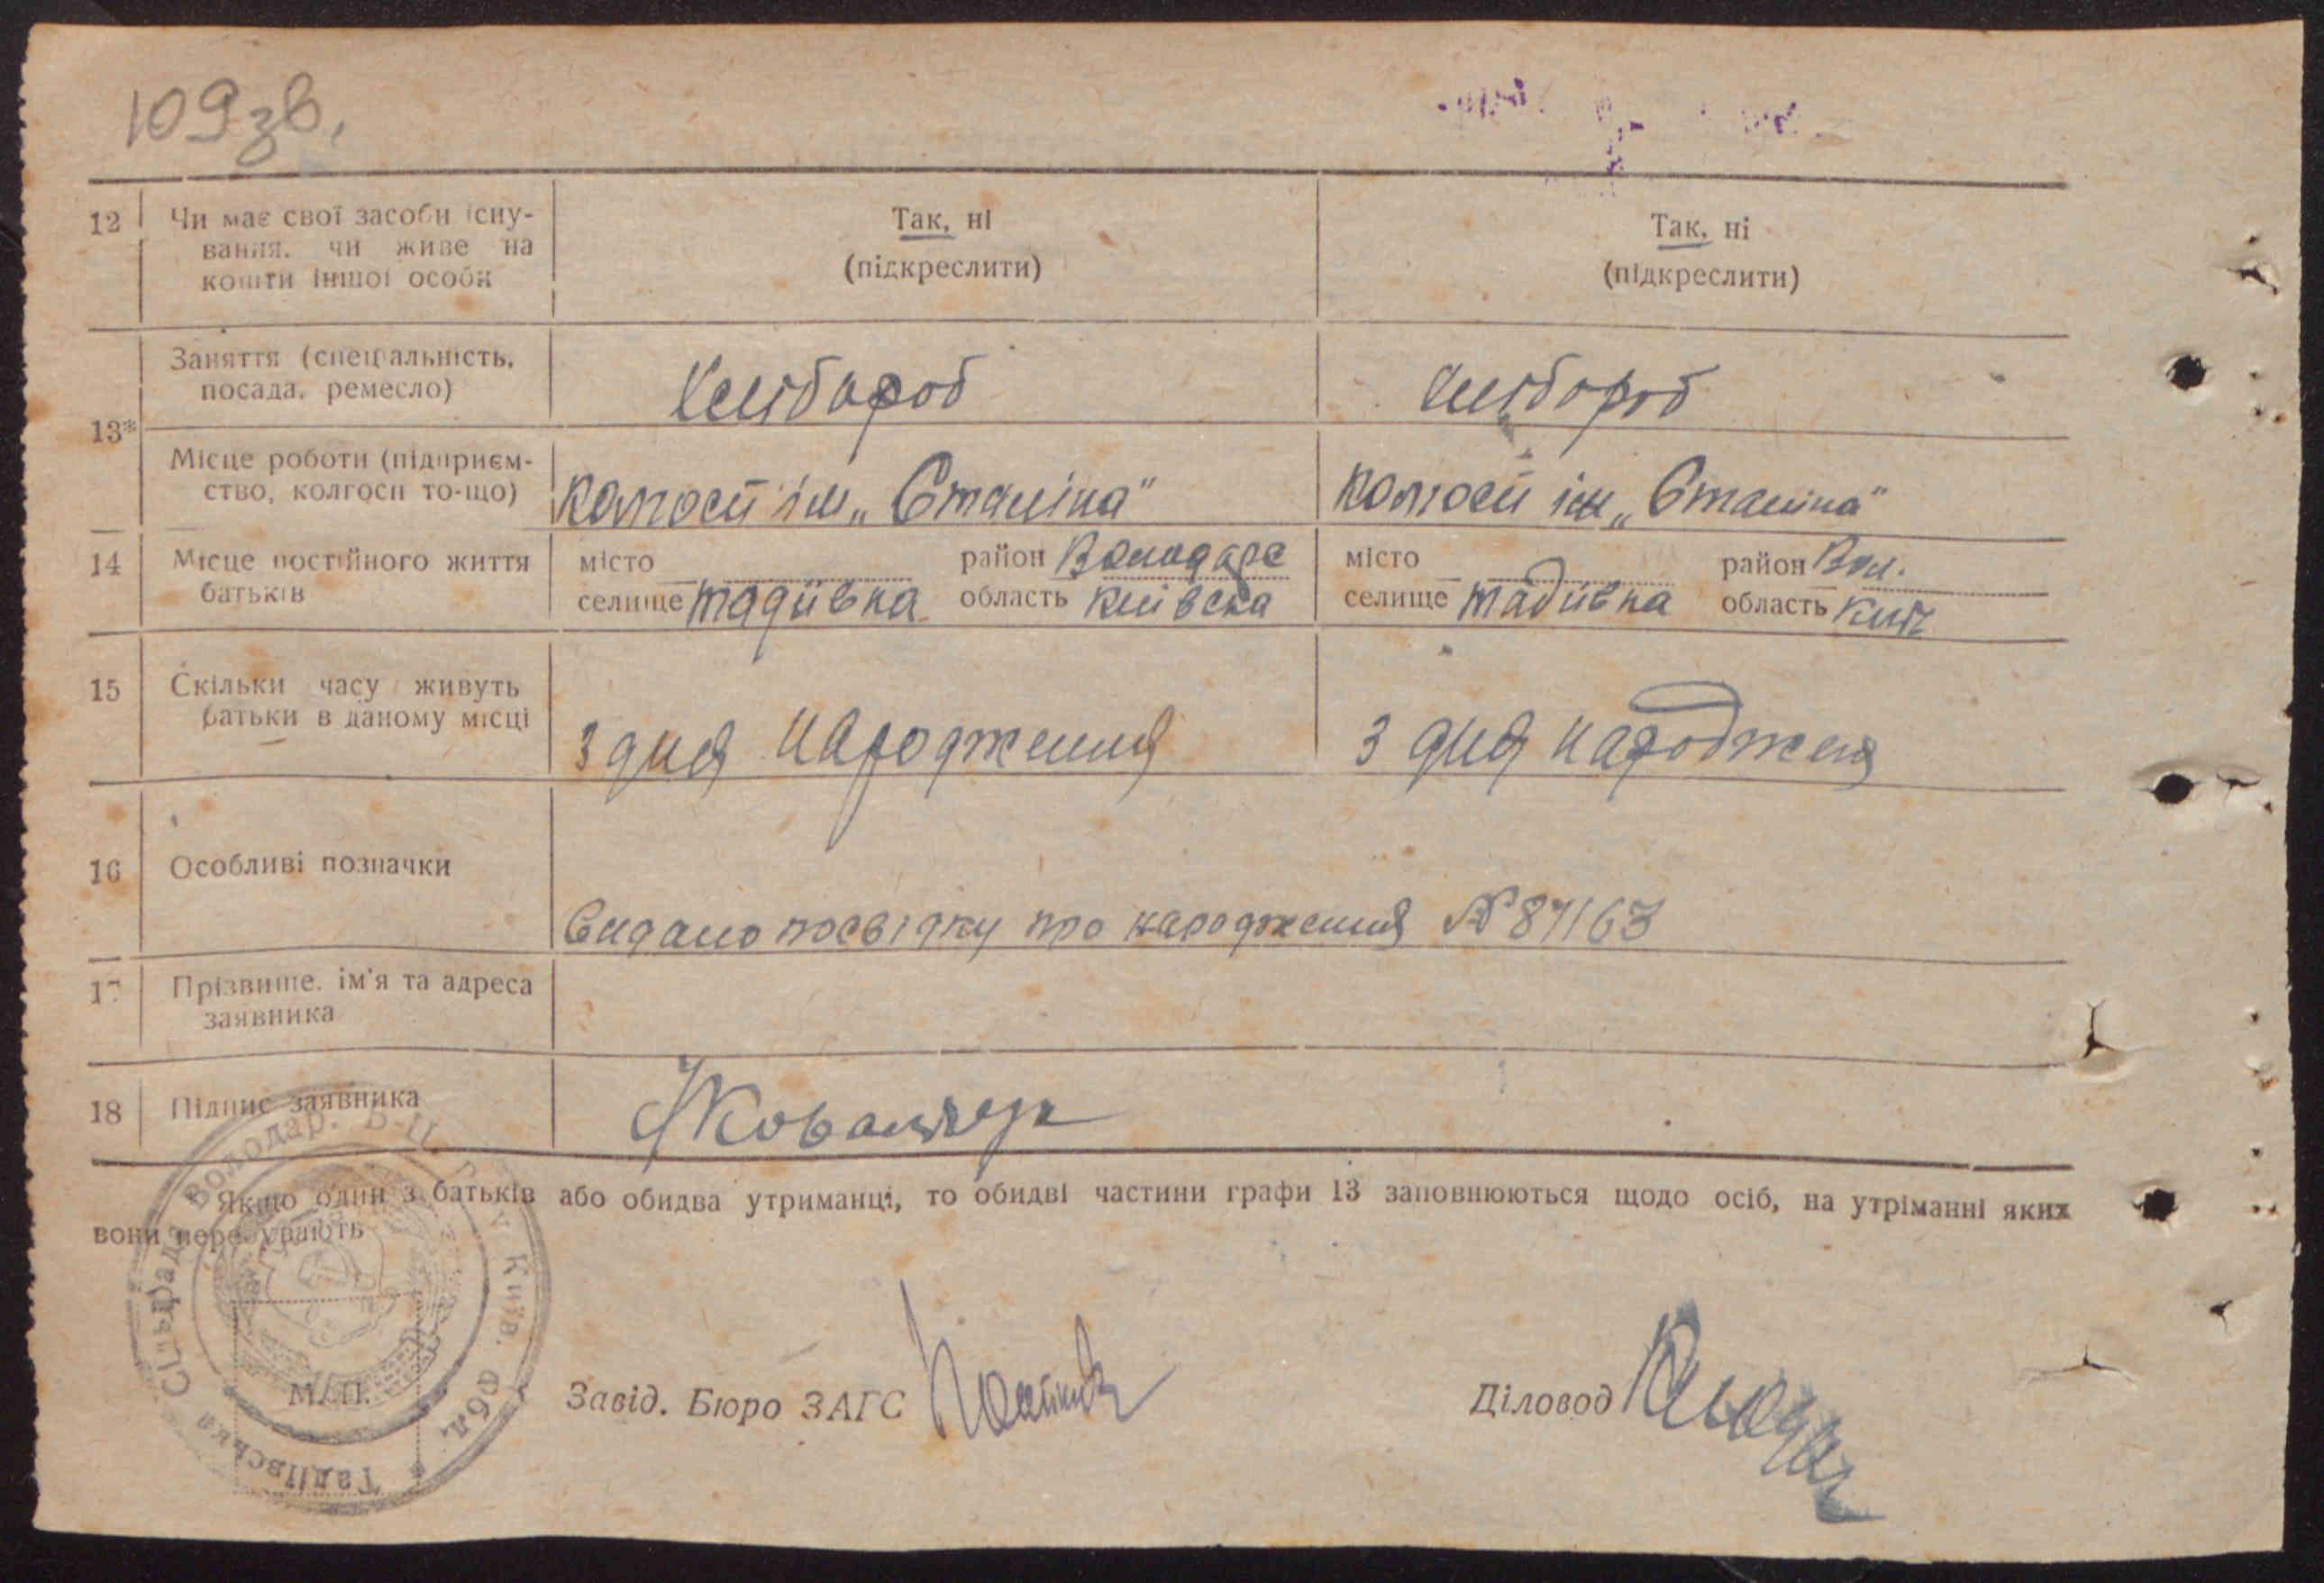 109 зв.
12 Чи має свої засоби існу-
вання, чи живе на
кошти іншої особи
Так, ні
(підкреслити)
Так, ні
(підкреслити)
13*
Заняття (спеціальність,
посада, ремесло)
хлібороб
хлібороб
Місце роботи (підприєм-
ство, колгосп то-що)
колгосп ім „Сталіна"
колгосп ім „Сталіна"
14 Місце постійного життя
батьків
місто район Володарс
селище тадіївка область київска
місто район Вол.
селище тадіївка область київ
15 Скільки часу живуть
батьки в даному місці
з дня народження
з дня народженя
16 Особливі позначки
Видано посвідку про народження № 87163
17 Прізвище, ім'я та адреса
заявника
18 Підпис заявника
Ковальчук
Якщо один з батьків або обидва утриманці, то обидві частини графи 13 заповнюються щодо осіб, на утріманні яких
вони перебувають
Тадіївська Сільрада Володар. Р-ну Київ. Обл.
М. П.
Завід. Бюро ЗАГС
Діловод